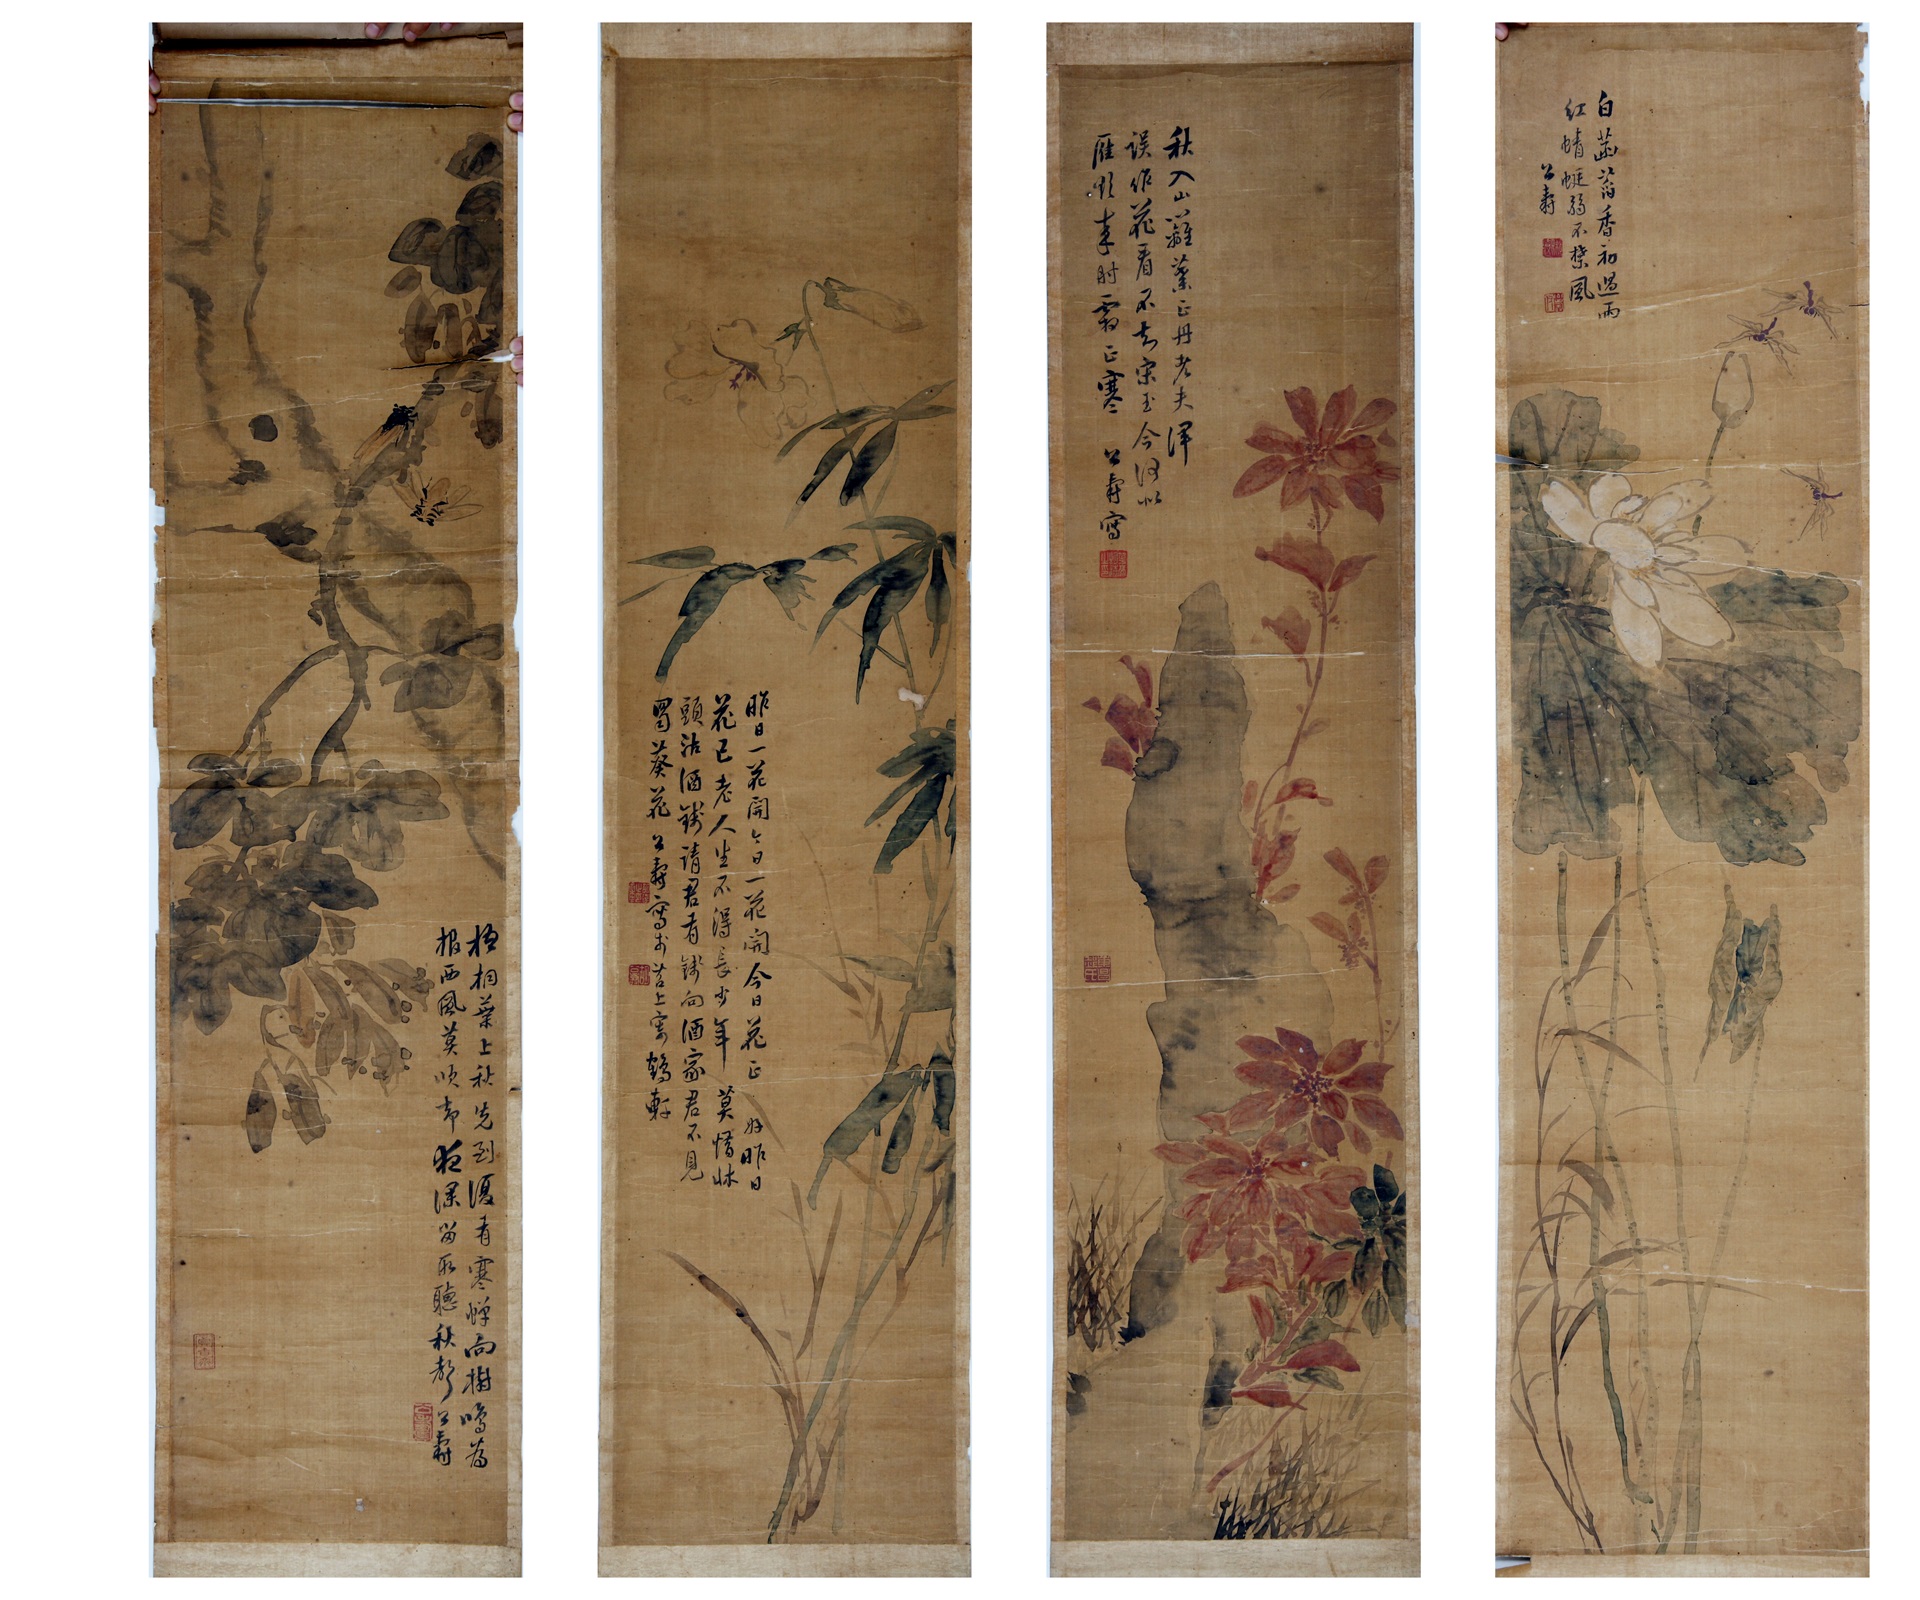 梧桐葉上秋先到復有寒蟬向樹鳴為
報西風莫順却夜深留取聽秋聲公壽
昨日一花開今日一花開今日花正好昨日
花已老人生不得長少年莫惜牀
頭沽酒錢請君有錢向酒家君不見
蜀葵花公壽寫於苕上寄鶴軒
秋入山籬葉正丹老夫渾
誤作花看不知宋玉今何似
雁來時霜正寒公壽寫
白菡萏香初過雨
紅蜻蜓弱不禁風
公壽